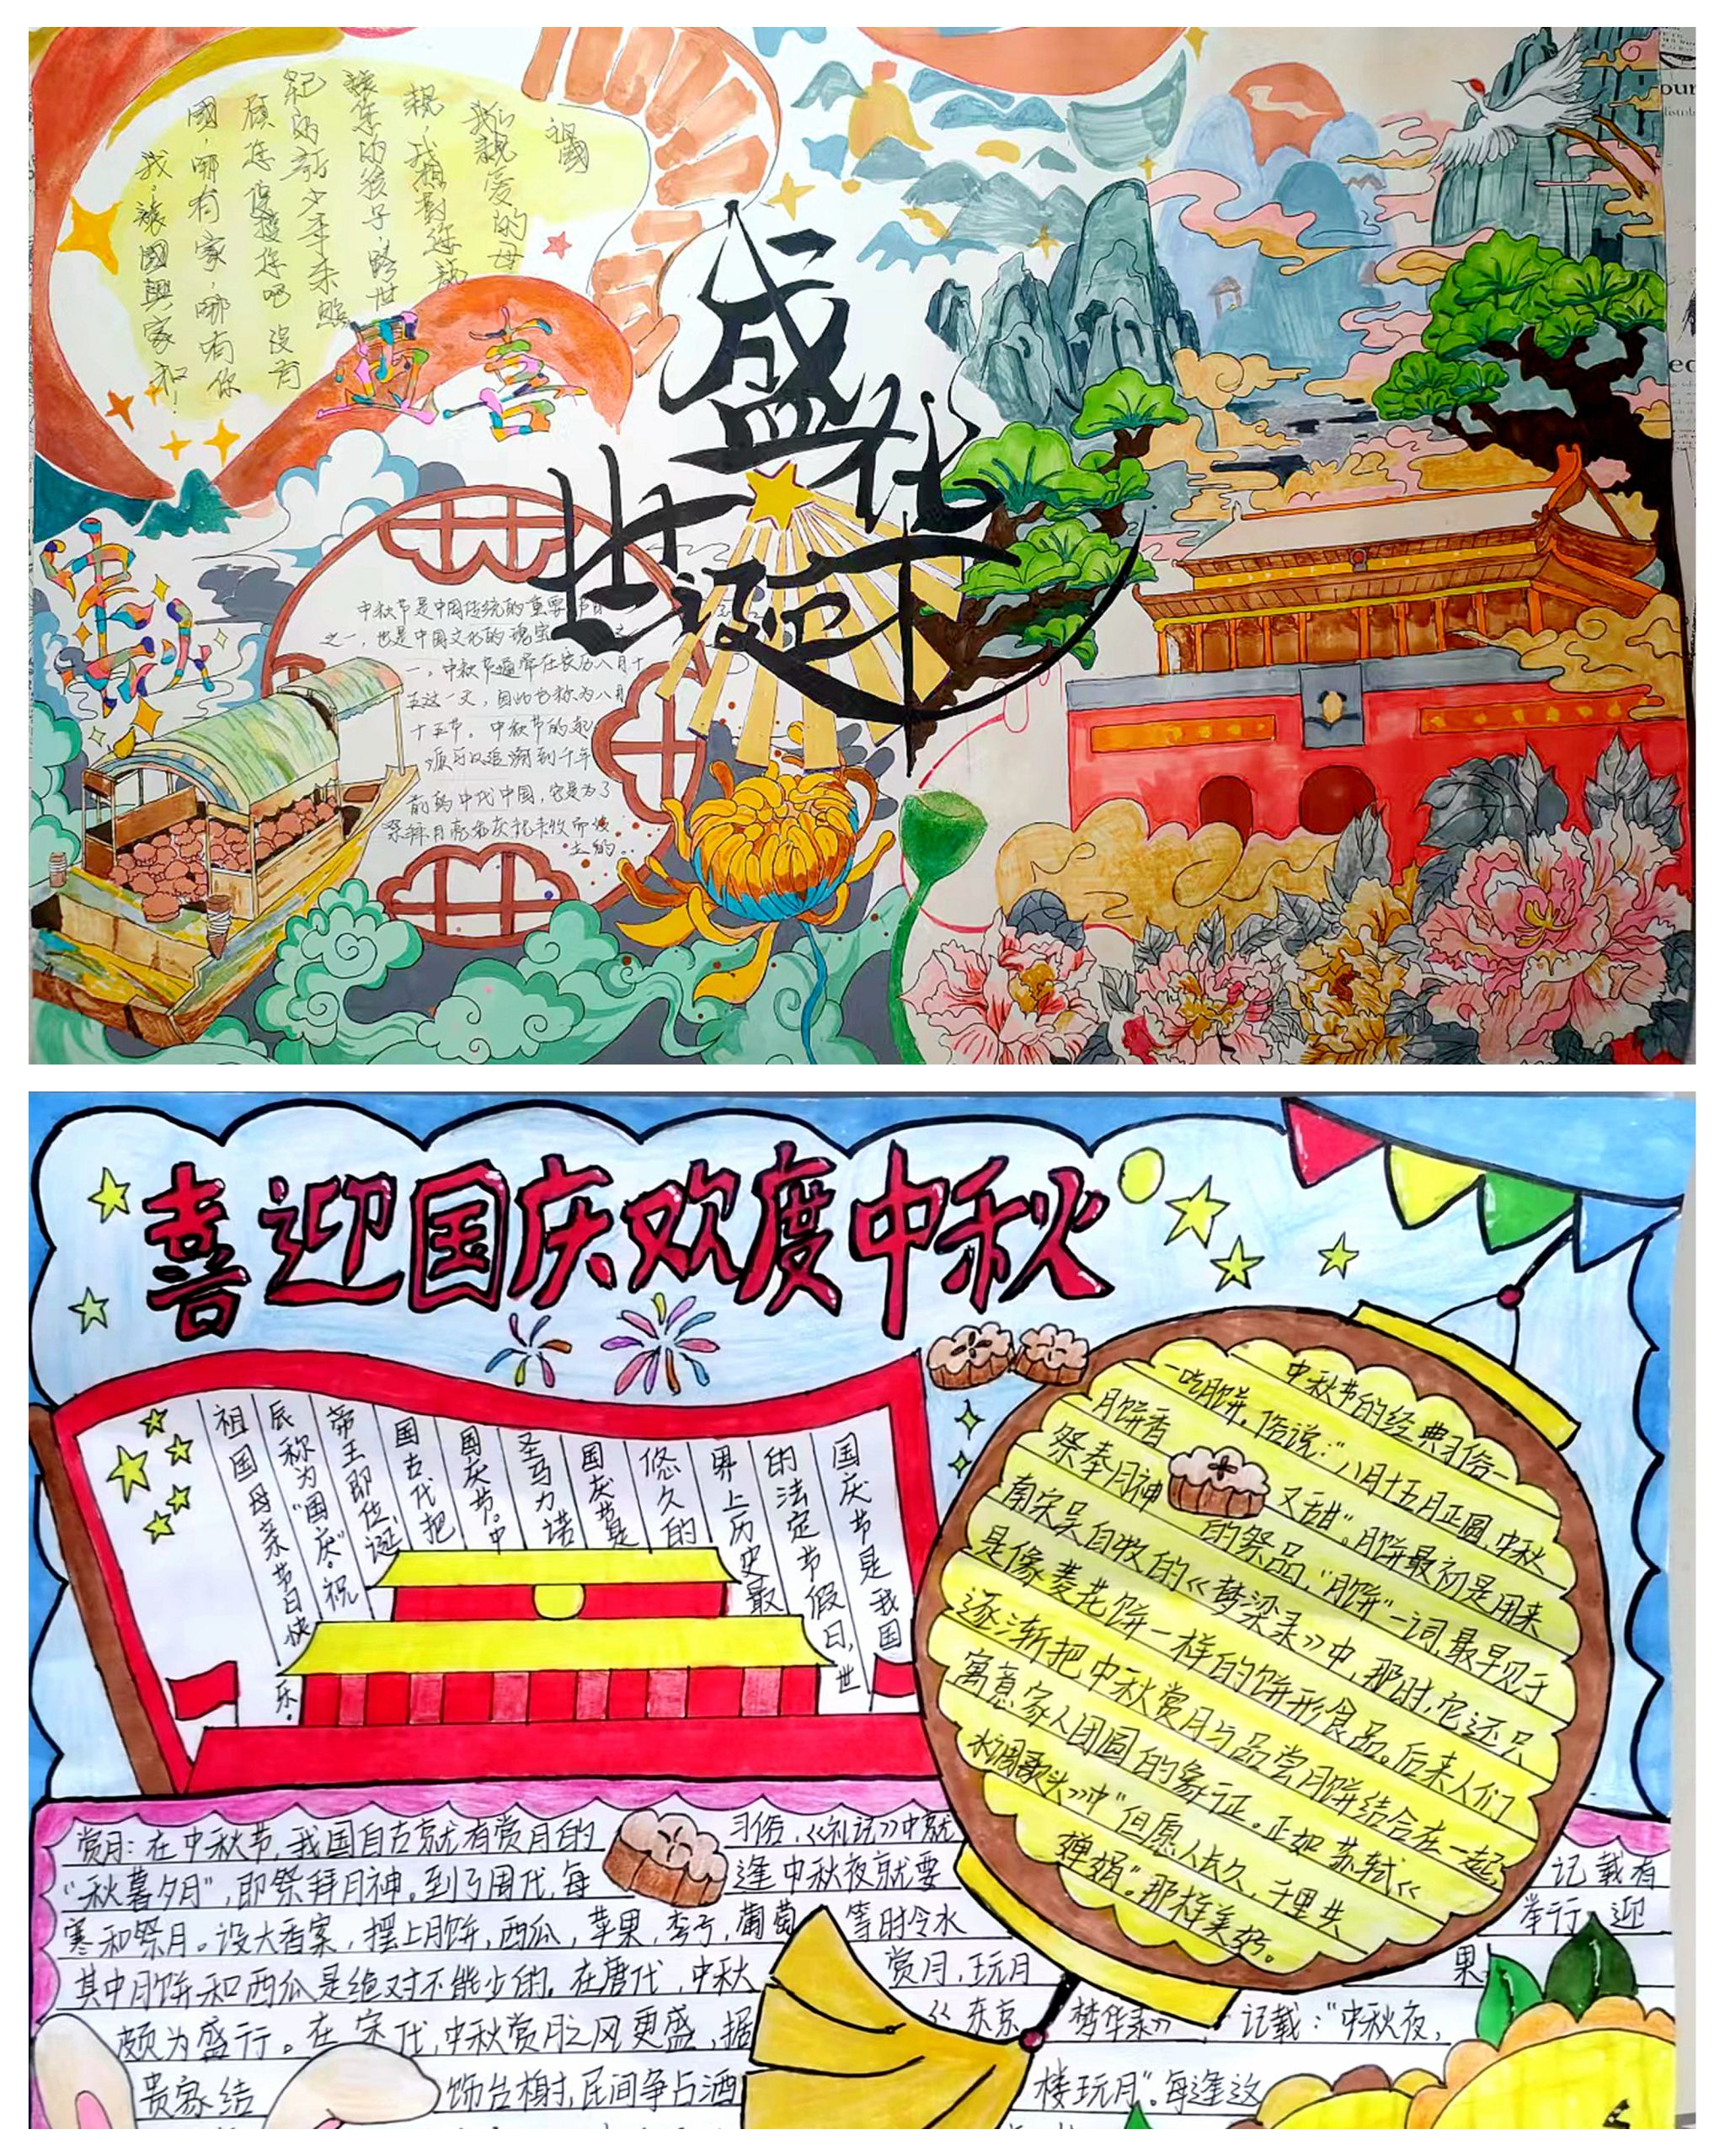 祖國
我親爱的母
親，我想對您説
讓您的孩子跨世
纪的新少年来
願您保護您吧 沒有
國，哪有家，哪有你
我。讓國興家和！
喜
迎
盛世华诞
中秋节是中国传统的重要节日
之一，也是中国文化的瑰宝
一。中秋节通常在农历八月十
五这一天，因此也称为八月
十五节。中秋节的起
源可以追溯到千年
前的 中代中国，它是为了
祭拜月亮和庆祝丰收而设
立的。
喜迎国庆欢度中秋
国庆节是我国
的法定节假日，世
界上历史最
悠久的
国庆节是
圣马力诺
国庆节。中
国古代把
帝王即位、诞
辰称为“国庆”。祝
祖国母亲节日快
乐。
中秋节的经典习俗一
一吃月饼。俗说：“八月十五月正圆，中秋
月饼香又甜”。月饼最初是用来
祭奉月神的祭品，“月饼”一词，最早见于
南宋吴自牧的《梦梁录》中，那时，它还只
是像菱花饼一样的饼形食品。后来人们
逐渐把中秋赏月与品尝月饼结合在一起，
寓意家人团圆的象证。正如苏轼《
水调歌头》中“但愿人长久，千里共
婵娟”。那样美好。
赏月：在中秋节，我国自古就有赏月的习俗，《礼记》中就记载有
“秋暮夕月”，即祭拜月神。到了周代，每逢中秋夜就要举行迎
寒和祭月。设大香案，摆上月饼，西瓜，苹果，李子，葡萄等时令水果
其中月饼和西瓜是绝对不能少的。在唐代，中秋赏月，玩月
颇为盛行。在宋代，中秋赏月之风更盛，据《东京梦华录》记载：“中秋夜，
贵家结饰台榭，民间争占酒楼玩月”。每逢这